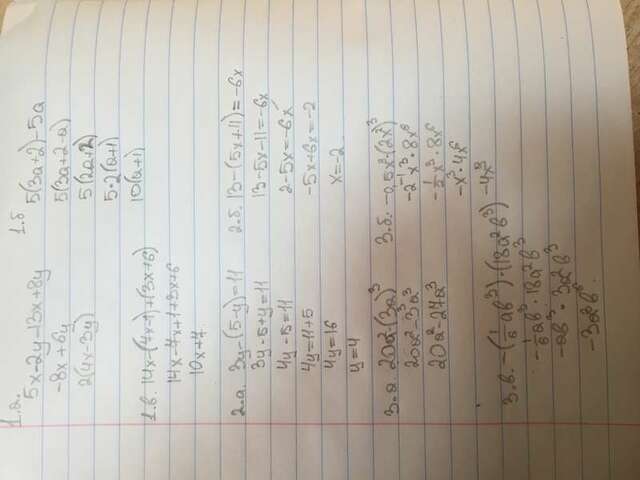 1.а. 5x-2y-13x+8y
-8x+6y
2(4x-3y)
1.б 5(3a+2)-5a
5(3a+2-a)
5(2a+2)
5·2(a+1)
10(a+1)
1.в. 14x-(7x-1)+(3x+6)
14x-7x+1+3x+6
10x+7
2.а. 3y-(5-y)=11
3y-5+y=11
4y-5=11
4y=11+5
4y=16
y=4
2.б. 13-(5x+11)=-6x
13-5x-11=-6x
2-5x=-6x
-5x+6x=-2
x=-2
3.а. 20a²-(3a)³
20a²-3³a³
20a²-27a³
3.б. -0,5x³·(2x²)³
-2⁻¹x³·8x⁶
-½x³·8x⁶
-x³·4x⁶
-4x⁹
3.в. -(⅙ab³)·(18a²b³)
-⅙ab³·18a²b³
-ab³·3a²b³
-3a³b⁶.